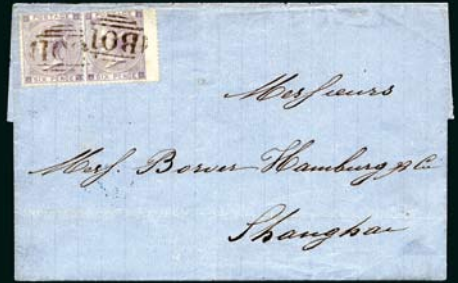 POSTAGE POSTAGE
SIX PENCE SIX PENCE
B01
Messieurs
Mess. Bower Hamburg & Co
Shanghai